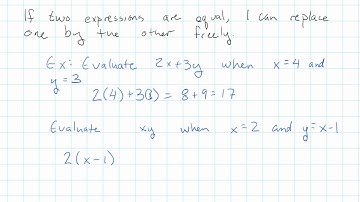 If two expressions are equal, I can replace
one by the other freely.
Ex: Evaluate 2x+3y when x=4 and
y=3
2(4)+3(3) = 8+9=17
Evaluate xy when x=2 and y=x-1
2(x-1)